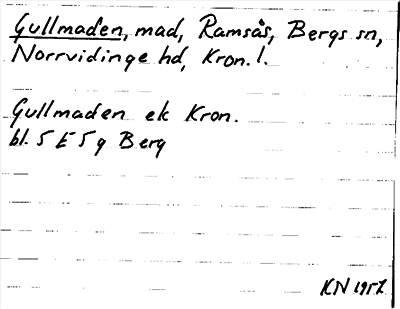 Gullmaden, mad, Ramsås, Bergs sn,
Norrvidinge hd, Kron. l.
Gullmaden ek Kron.
bl. 5 E 5 g Berg
KN 1957